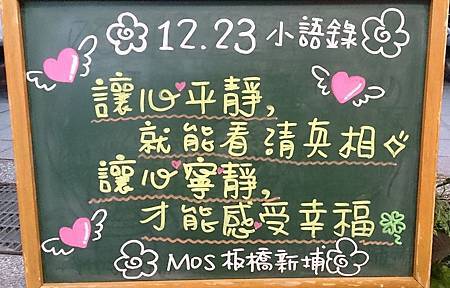 12.23 小語錄
讓心平靜,
就能看清真相
讓心寧靜,
才能感受幸福
MOS 板橋新埔